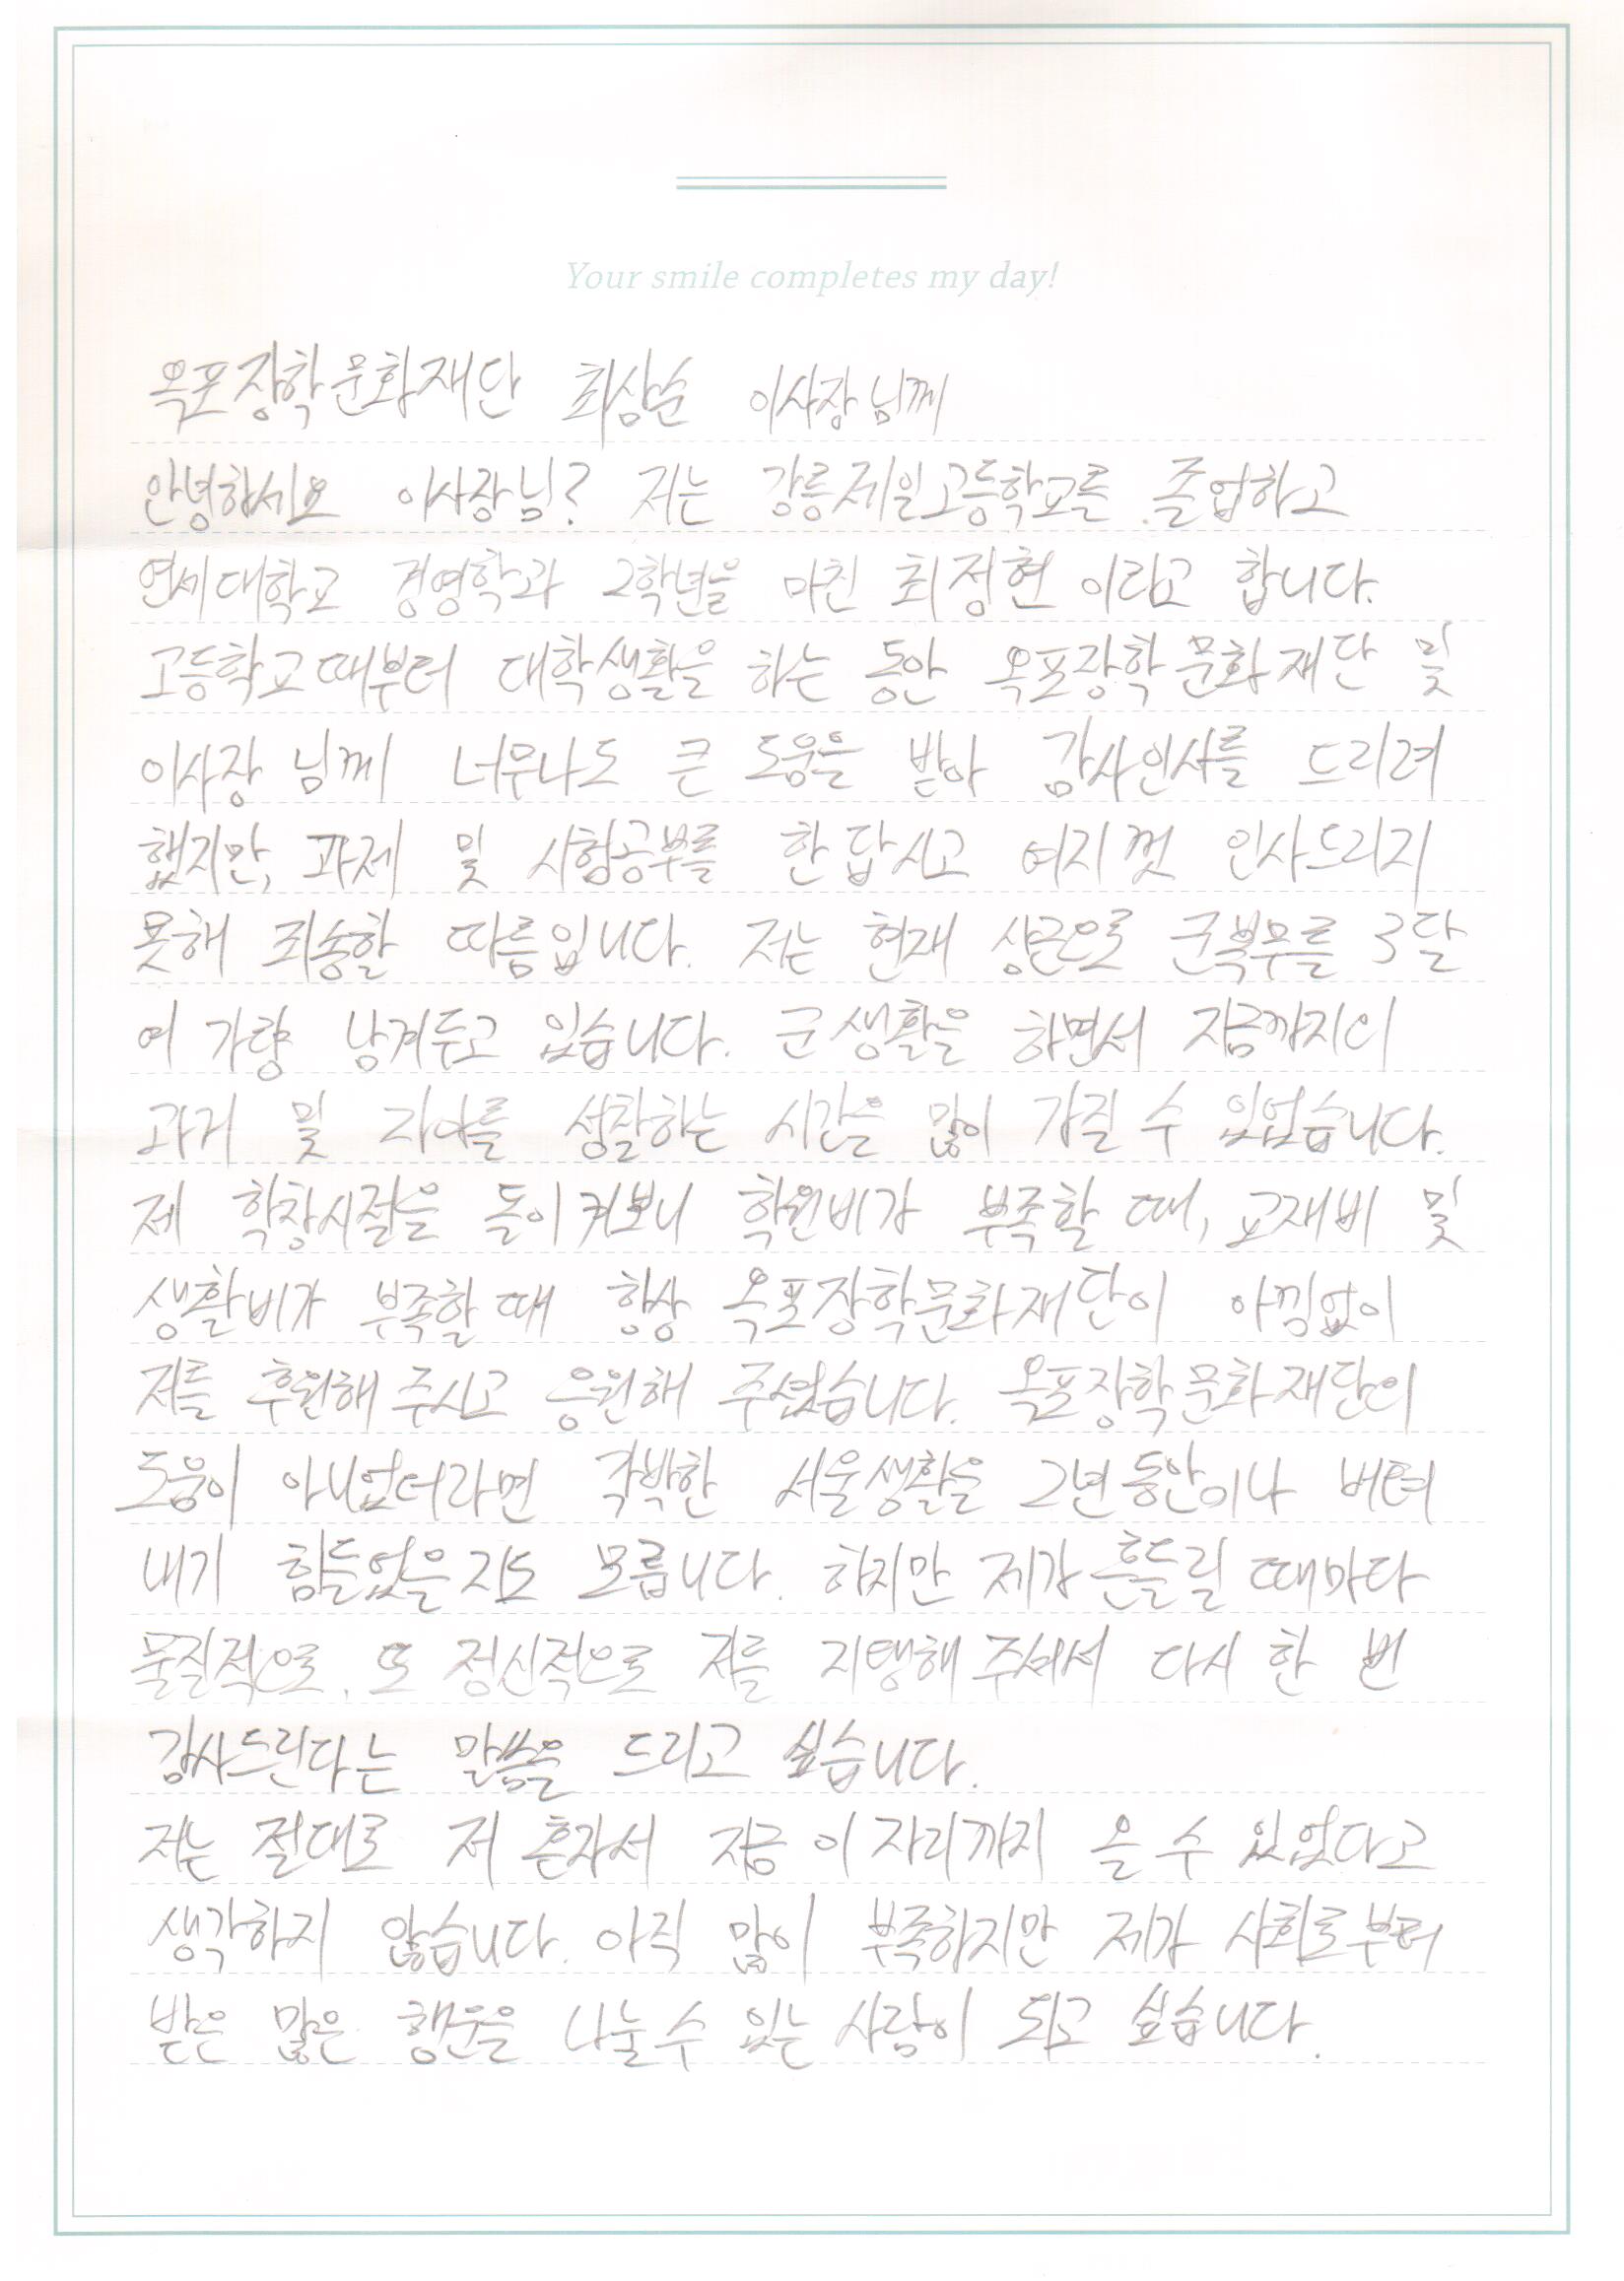 Your smile completes my day!
옥포장학문화재단 최상순 이사장님께
안녕하세요 이사장님? 저는 강릉제일고등학교를 졸업하고
연세대학교 경영학과 2학년을 마친 최정현 이라고 합니다.
고등학교때부터 대학생활을 하는 동안 옥포장학문화재단 및
이사장 님께 너무나도 큰 도움을 받아 감사인사를 드리려
했지만, 과제 및 시험공부를 한답시고 여지껏 인사드리지
못해 죄송할 따름입니다. 저는 현재 상근으로 군복무를 3달
여 가량 남겨두고 있습니다. 군생활을 하면서 지금까지의
과거 및 자아를 성찰하는 시간을 많이 가질 수 있었습니다.
제 학창시절을 돌이켜보니 학원비가 부족할 때, 교재비 및
생활비가 부족할 때 항상 옥포장학문화재단이 아낌없이
저를 후원해 주시고 응원해 주셨습니다. 옥포장학문화재단의
도움이 아니었더라면 각박한 서울생활을 2년동안이나 버텨
내기 힘들었을지도 모릅니다. 하지만 제가 흔들릴 때마다
물질적으로, 또 정신적으로 저를 지탱해 주셔서 다시 한 번
감사드린다는 말씀을 드리고 싶습니다.
저는 절대로 저 혼자서 지금 이 자리까지 올 수 있었다고
생각하지 않습니다. 아직 많이 부족하지만 제가 사회로부터
받은 많은 행운을 나눌 수 있는 사람이 되고 싶습니다.